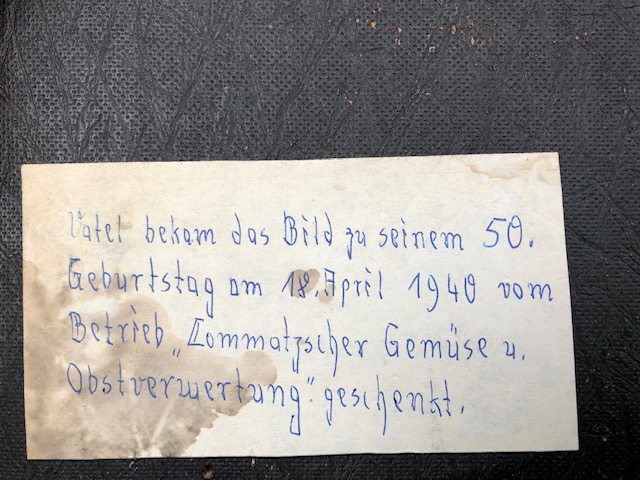 Vatel bekam das Bild zu seinem 50.
Geburtstag am 18. April 1940 vom
Betrieb „Lommatzscher Gemüse u.
Obstverwertung“ geschenkt.